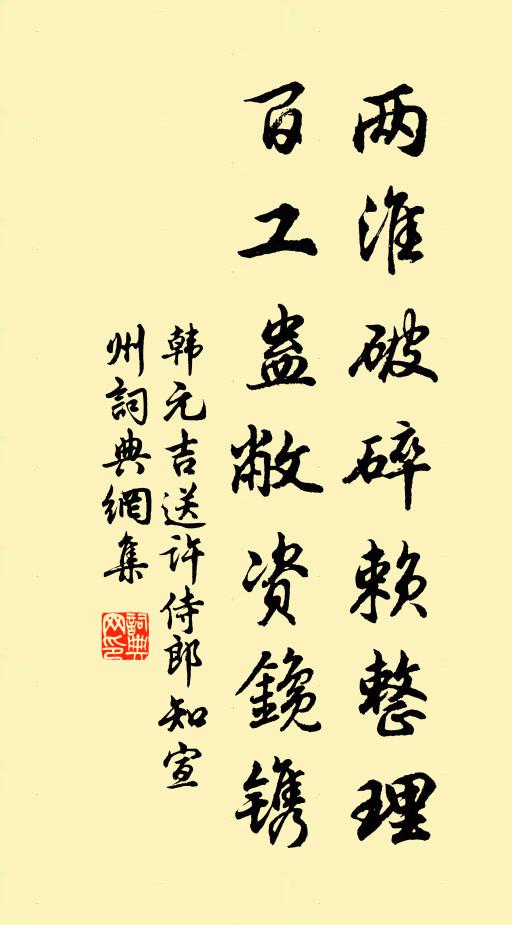 两淮破碎赖整理
百工蛊敝资鑱镌
韩元吉送许侍郎知宣
州詞典網集
詞典
网印